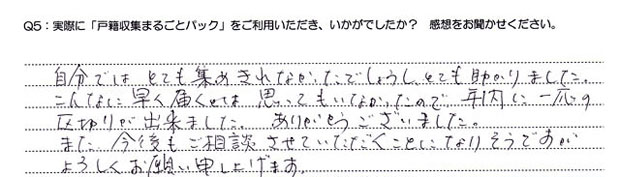 Q5：実際に「戸籍収集まるごとパック」をご利用いただき、いかがでしたか？　感想をお聞かせください。
自分では とても集めきれなかったでしょうし、とても助かりました。
こんなに早く届くとは 思ってもいなかったので 年内に一応の
区切りが出来ました。 ありがとうございました。
また 今後もご相談させていただくことになりそうですが
よろしくお願い申し上げます。